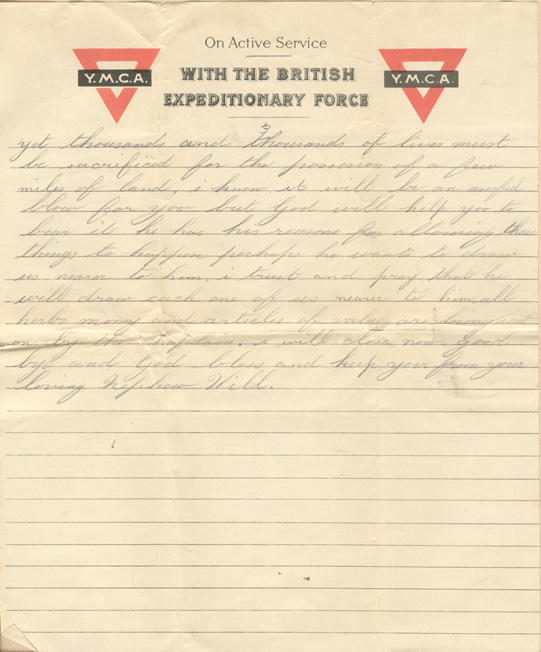 On Active Service
Y.M.C.A. WITH THE BRITISH Y.M.C.A.
EXPEDITIONARY FORCE
3
yet thousands and thousands of lives must
be sacrificed for the possession of a few
miles of land, i know it will be an awful
blow for you but God will help you to
bear it he has his reasons for allowing these
things to happen perhaps he wants to draw
us nearer to him, i trust and pray that he
will draw each one of us nearer to him, all
herbs money and articles of value are being sent
on by the chaplain. i will close now Good
bye and God bless and keep you from your
loving Nephew Will.